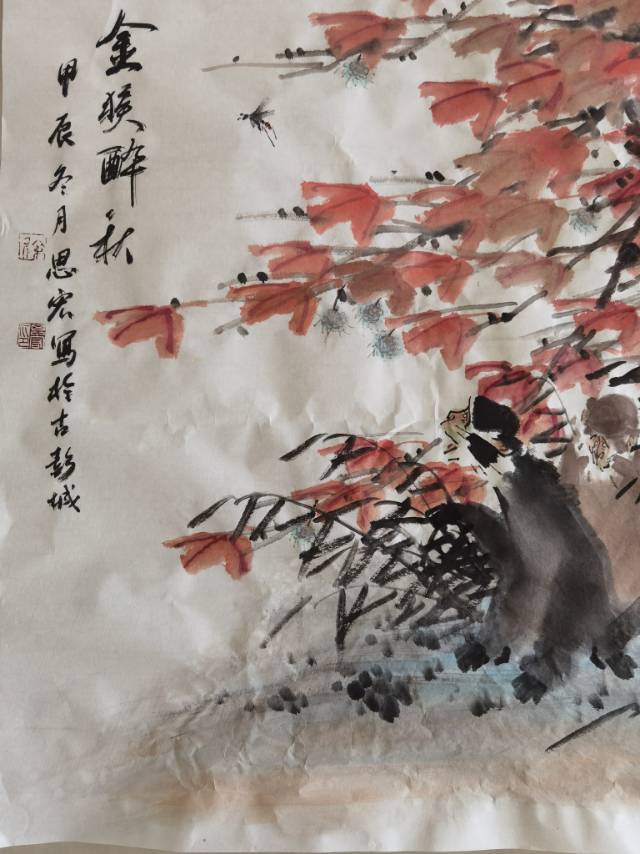 金猴醉秋
甲辰冬月思宏寫於古彭城